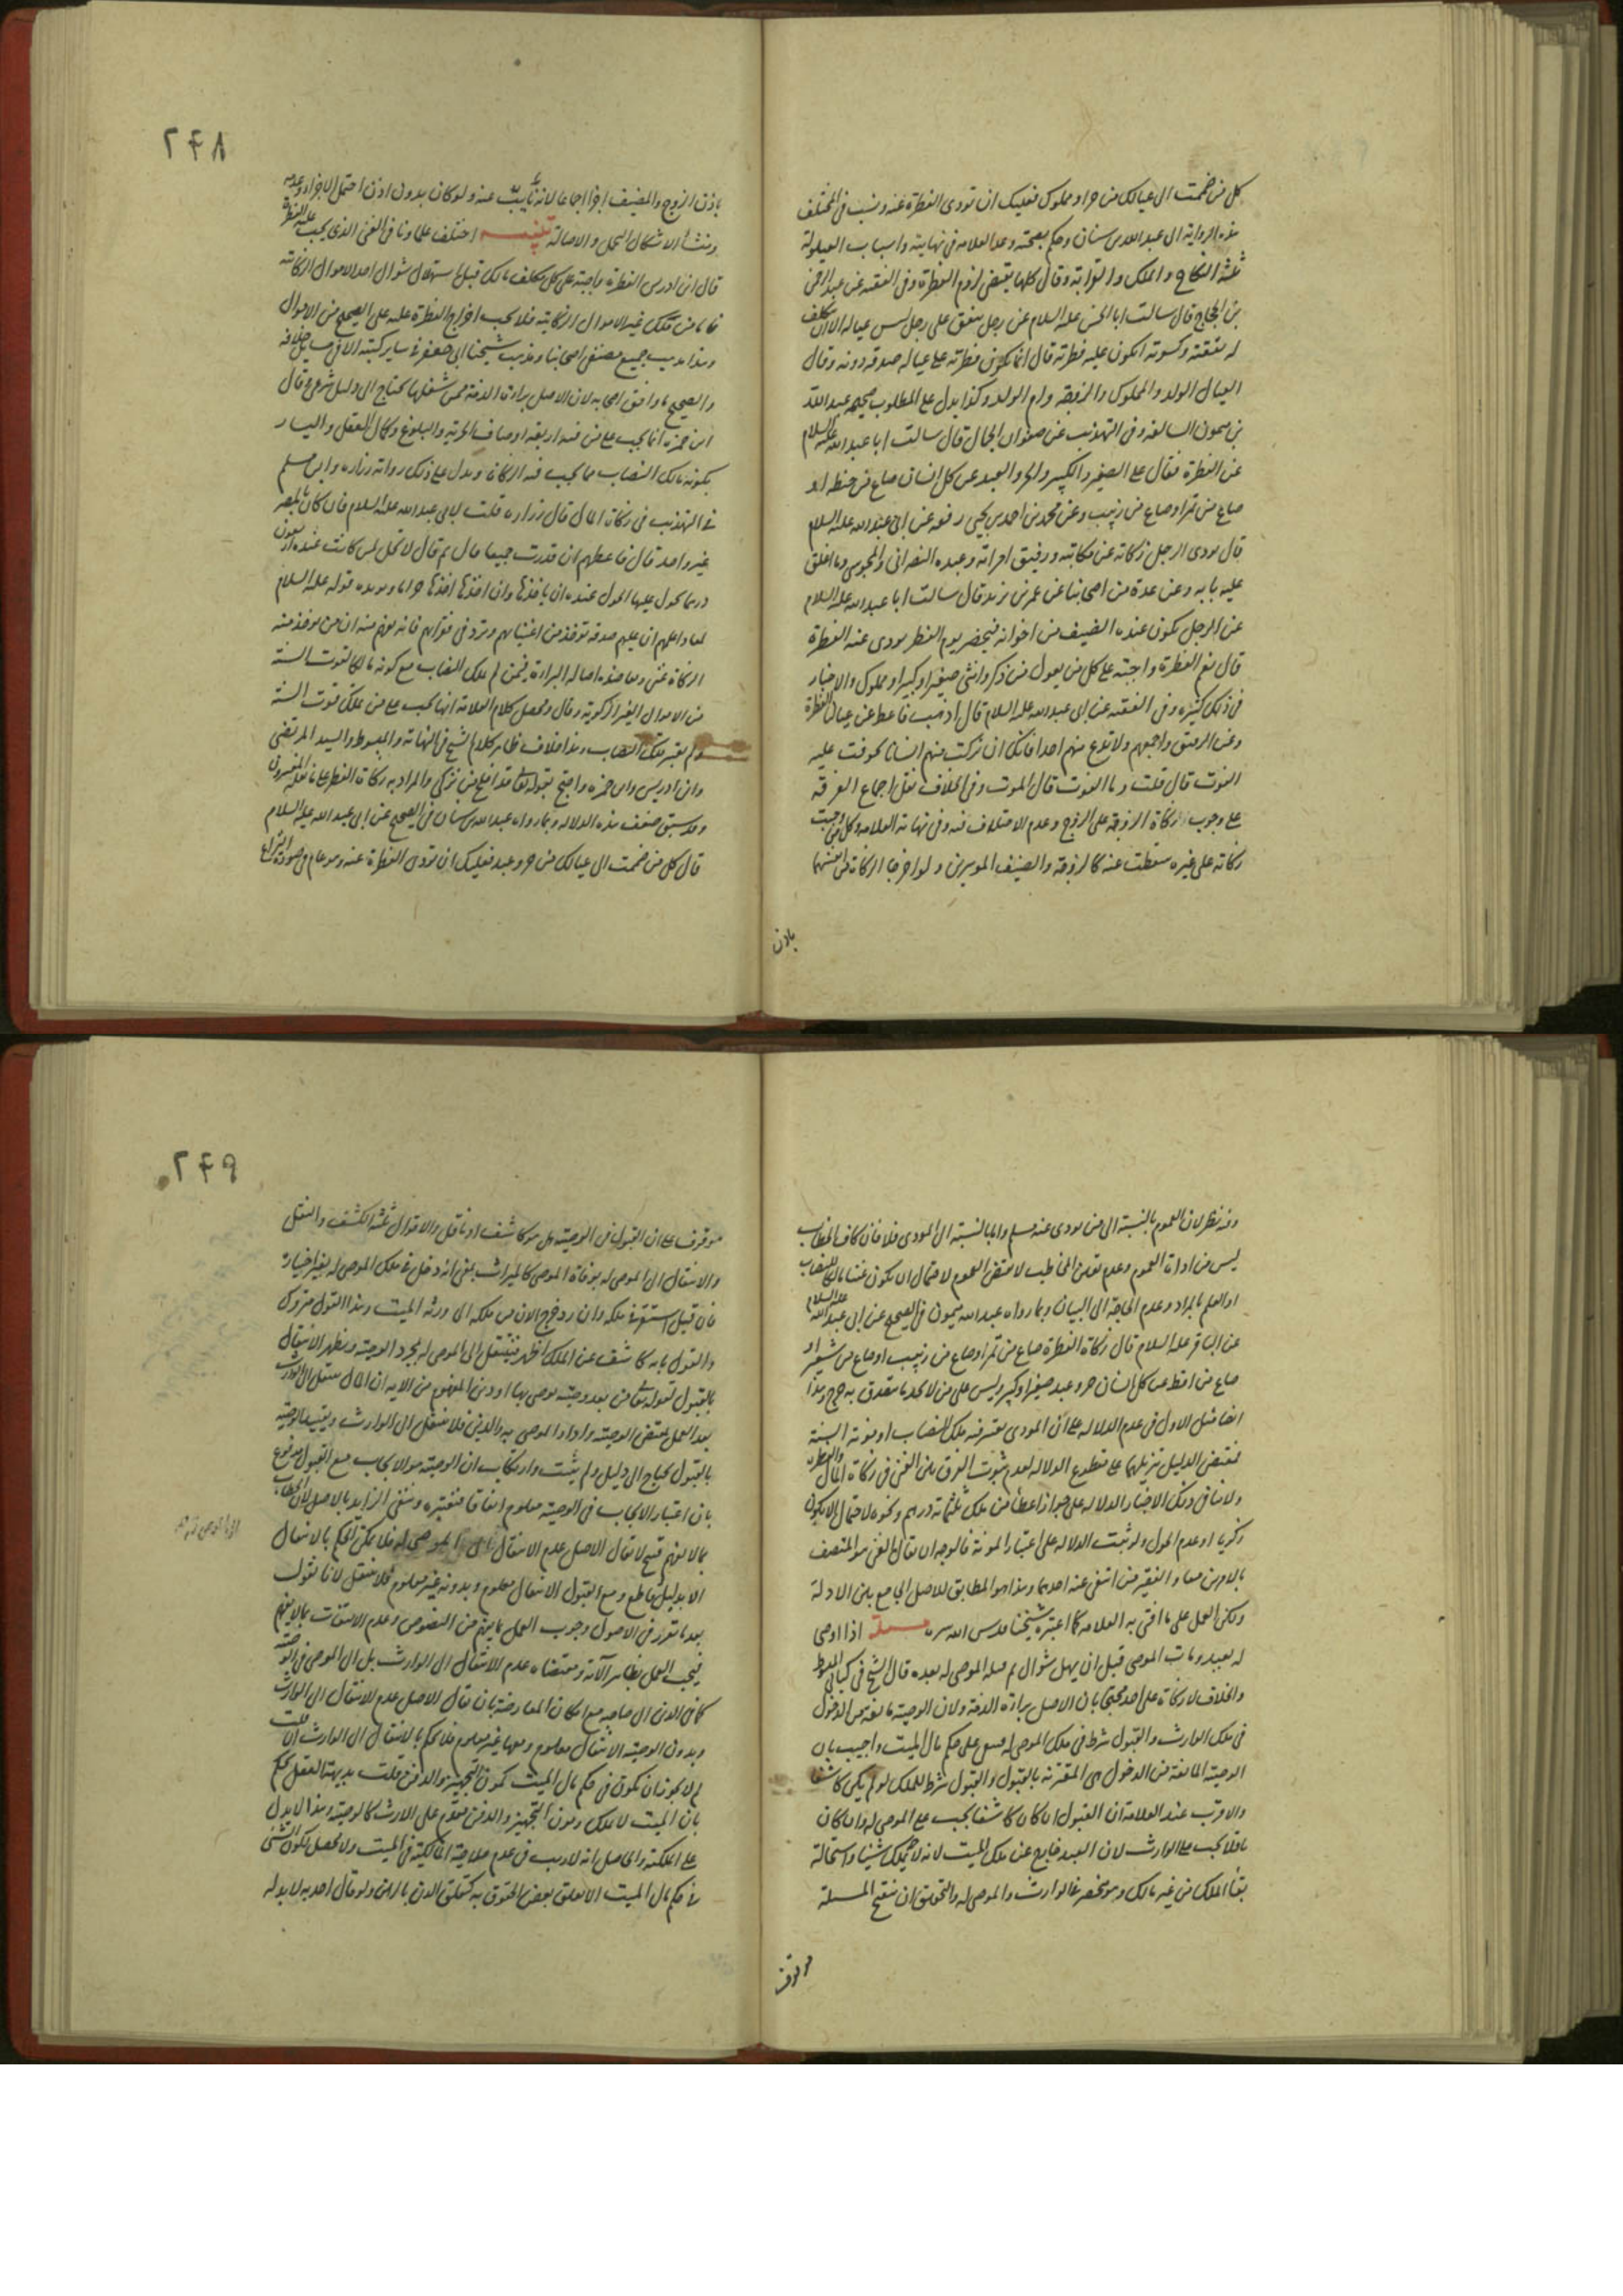 كل من ضمت الى عيالك من حر او مملوك فعليك ان تودى الفطرة عنه ونسب فى المختلف
هذه الرواية الى عبد الله بن سنان وحكم بصحته وعد العلامه فى نهايته واسباب العيلولة
ثلثه النكاح والملك والقرابة وقال كلها يقتضى لزوم الفطرة وفى الفقيه عن عبد الرحمن
بن الحجاج قال سالت ابا الحسن عليه السلام عن رجل ينفق على رجل ليس عياله الا انه يتكلف
له نفقته وكسوته اتكون عليه فطرته قال انما تكون فطرته على عياله صدقه دونه وقال
العيال الولد والمملوك والزوجه وام الولد وكذا يدل على المطلوب صحيحه عبد الله
بن ميمون السالفه وفى التهذيب عن صفوان الجمال قال سالت ابا عبد الله عليه السلام
عن الفطرة فقال على الصغير والكبير والحر والعبد عن كل انسان صاع من حنطه او
صاع من تمر او صاع من زبيب وعن محمد بن احمد بن يحيى رفعه عن ابى عبد الله عليه السلام
قال يودى الرجل زكاته عن مكاتبه ورقيق امراته وعبده النصرانى والمجوسى وما اغلق
عليه بابه وعن عدة من اصحابنا عن عمر بن يزيد قال سالت ابا عبد الله عليه السلام
عن الرجل يكون عنده الضيف من اخوانه فيحضر يوم الفطر يودى عنه الفطرة
قال نعم الفطرة واجبة على كل من يعول من ذكر وانثى صغير او كبير او مملوك والاخبار
فى ذلك كثيره وفى الفقيه عن ابى عبد الله عليه السلام قال اذهب فاعط عن عيالنا الفطرة
وعن الرقيق واجمعهم ولا تدع منهم احدا فانك ان تركت منهم انسانا تخوفت عليه
الفوت قال قلت وما الفوت قال الموت وفى الخلاف نقل اجماع الفرقه
على وجوب زكاة الزوجة على الزوج وعدم الاختلاف فيه وفى نهاية العلامه وكل من وجبت
زكاته على غيره سقطت عنه كالزوجة والضيف الموسرين ولو اخرجا الزكاة عن انفسهما
باذن
٢٤٨
باذن الزوج والمضيف اجزا اجماعا لانه نايب عنه ولو كان بدون اذن احتمل الاجزاء وعدمه
ومنشأ الاشكال التحمل والاصالة اختلف علماونا فى الغنى الذى يجب عليه الفطرة
قال ابن ادريس الفطرة واجبة على كل مكلف مالك قبل استهلال شوال احد الاموال الزكاتيه
فاما من ملك غير الاموال الزكاتية فلا يجب اخراج الفطرة عليه على الصحيح من الاموال
وهذا مذهب جميع مصنفى اصحابنا ومذهب شيخنا ابى جعفر فى ساير كتبه الا فى مسايل خلافه
والصحيح ما وافق اصحابه لان الاصل براءة الذمة فمن شغلها يحتاج الى دليل شرعى وقال
ابن حمزه انما يجب على من فيه اربعه اوصاف الحرية والبلوغ وكمال العقل واليسار
بكونه مالك النصاب مما يجب فيه الزكاة ويدل على ذلك رواية زراره وابن مسلم
فى التهذيب فى زكاة المال قال زراره قلت لابى عبد الله عليه السلام فان كان بالمصر
غير واحد قال فاعطهم ان قدرت جميعا قال ثم قال لا تحل لمن كانت عنده اربعون
درهما يحول عليها الحول عنده ان ياخذها وان اخذها اخذها حراما ويويده قوله عليه السلام
لمعاذ اعلمهم ان عليهم صدقه توخذ من اغنيائهم وترد فى فقرائهم فانه يفهم منه ان من يوخذ منه
الزكاة غنى ومما ضده اصاله البراءة فيمن لم يملك النصاب مع كونه مالكا لقوت السنة
من الاموال الغير الزكوية وقال ومحصل كلام العلامة انها تجب على من ملك قوت السنة
ولم يعتبر ملك النصاب وهذا خلاف ظاهر كلام الشيخ فى النهاية والمبسوط والسيد المرتضى
وابن ادريس وابن حمزه واحتج بقوله تعالى قد افلح من تزكى والمراد به زكاة الفطر على ما نقله المفسرون
وقد سبق ضعف هذه الدلاله وبما رواه عبد الله بن سنان فى الصحيح عن ابى عبد الله عليه السلام
قال كل من ضمت الى عيالك من حر وعبد فعليك ان تودى الفطرة عنه وهو عام فى صورة النزاع
وفيه نظر لان العموم بالنسبة الى من يودى عنه مسلم واما بالنسبة الى المودى فلا فان كاف الخطاب
ليس من اداة العموم وعدم تعين المخاطب لا يقتضى العموم لاحتمال ان يكون غنيا مالكا للنصاب
او العلم بالمراد وعدم الحاجة الى البيان وبما رواه عبد الله ميمون فى الصحيح عن ابى عبد الله عليه السلام
عن الباقر عليه السلام قال زكاة الفطرة صاع من تمر او صاع من زبيب او صاع من شعير او
صاع من اقط عن كل انسان حر وعبد صغير او كبير وليس على من لا يجد ما يتصدق به حرج وهذا
ايضا مثل الاول فى عدم الدلاله على ان المودى يعتبر فيه ملك النصاب او مونة السنة
فمقتضى الدليل تنزيلهما على مقطوع الدلاله لعدم ثبوت الفرق بين الغنى فى زكاة المال والفطرة
ولا ينافى ذلك الاخبار الدلاله على جواز اعطا من ملك ثلثمائه درهم ونحوه لاحتمال ان لا يكون
زكويا او عدم الحول ولو ثبت الدلاله على اعتبار المونة فالوجه ان يقال الغنى هو المتصف
بالامرين معا والفقير من انتفى عنه احدهما وهذا هو المطابق للاصل الجامع بين الادلة
ولكن العمل على ما افتى به العلامه كما اعتبره شيخنا قدس الله سره مسئلة اذا اوصى
له بعبد ومات الموصى قبل ان يهل شوال ثم قبله الموصى له بعده قال الشيخ فى كتابى المبسوط
والخلاف لا زكاة على احد محتجا بان الاصل براءة الذمة ولان الوصية مانعة من الدخول
فى ملك الوارث والقبول شرط فى ملك الموصى له فيبقى على حكم مال الميت واجيب بان
الوصية المانعة من الدخول هى المقترنة بالقبول والقبول شرط للملك لو لم يكن كاشفا
والاقرب عند العلامة ان القبول ان كان كاشفا يجب على الموصى له وان كان
ناقلا يجب على الوارث لان العبد خارج عن ملك الميت لانه لا يملك شيئا واستحالة
بقاء الملك من غير مالك وهو منحصر فى الوارث والموصى له والتحقيق ان تنقيح المسئلة
موقوف
٢٤٩
موقوف على ان القبول فى الوصية هل هو كاشف او ناقل والاقوال ثلثه الكشف والنقل
والانتقال الى الموصى له بوفاة الموصى كالميراث بمعنى انه دخل فى ملك الموصى له بغير اختياره
فان قبل استقر فى ملكه وان رد خرج الان من ملكه الى ورثه الميت وهذا القول متروك
والقول بانه كاشف عن الملك اظهر فينتقل الى الموصى له بمجرد الوصية ويظهر الانتقال
بالقبول لقوله تعالى من بعد وصية يوصى بها او دين المفهوم من الاية ان المال ينتقل الى الوارث
بعد العمل بمقتضى الوصية واداء الموصى به والدين فلا ينتقل الى الوارث وتقييد الوصية
بالقبول يحتاج الى دليل ولم يثبت وارتكاب ان الوصية هو الايجاب مع القبول مدفوع
بان اعتبار الايجاب فى الوصية معلوم اتفاقا فنعتبره وننفى الزايد بالاصل لان الخطاب
بما لا يفهم قبيح لا يقال الاصل عدم الانتقال الى الموصى له فلا يمكن الحكم بالانتقال
الا بدليل قاطع ومع القبول الانتقال معلوم وبدونه غير معلوم فلا ينتقل لانا نقول
بعد ما تقرر فى الاصول وجوب العمل بما يفهم من النصوص وعدم الالتفات بما لا يفهم
فيجب العمل بظاهر الآية ومقتضاه عدم الانتقال الى الوارث بل الى الموصى فى الوصية
كما فى الدين الى صاحبه مع امكان المعارضة بان يقال الاصل عدم الانتقال الى الوارث
وبدون الوصية الانتقال معلوم ومعها غير معلوم فلا يحكم بالانتقال الى الوارث فان قلت
لم لا يجوز ان تكون فى حكم مال الميت كمون التجهيز والدفن قلت بديهة العقل تحكم
بان الميت لا يملك ومون التجهيز والدفن مقدم على الارث كالوصية وهذا لا يدل
على الملكية والحاصل انه لا ريب فى عدم صلاحية المالكية فى الميت ولا محصل لكون الشئ
فى حكم مال الميت الا تعلق بعض الحقوق به كتعلق الدين بالرهن ولو قال احد به لا بد له